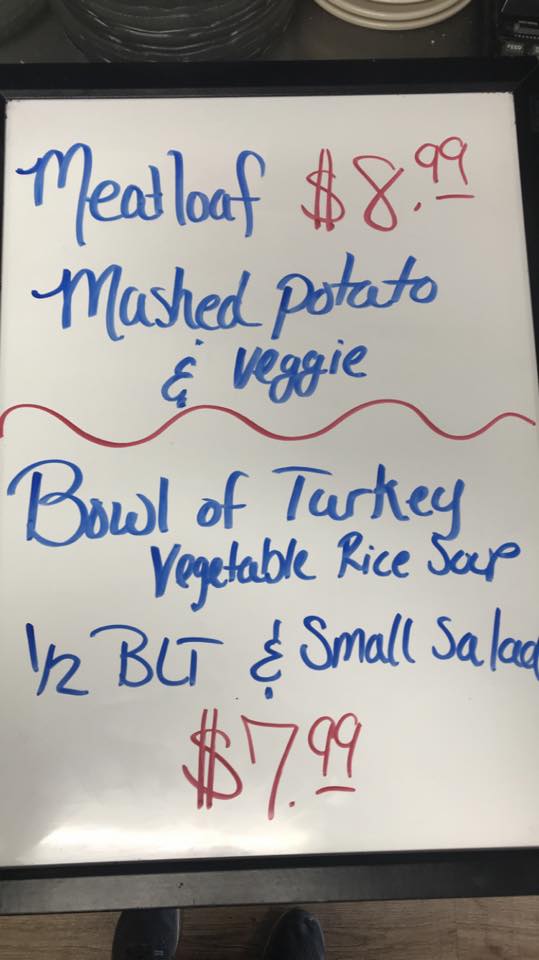 Meatloaf $8.99
Mashed potato
& veggie
Bowl of Turkey
Vegetable Rice Soup
1/2 BLT & Small Salad
$7.99
FEED